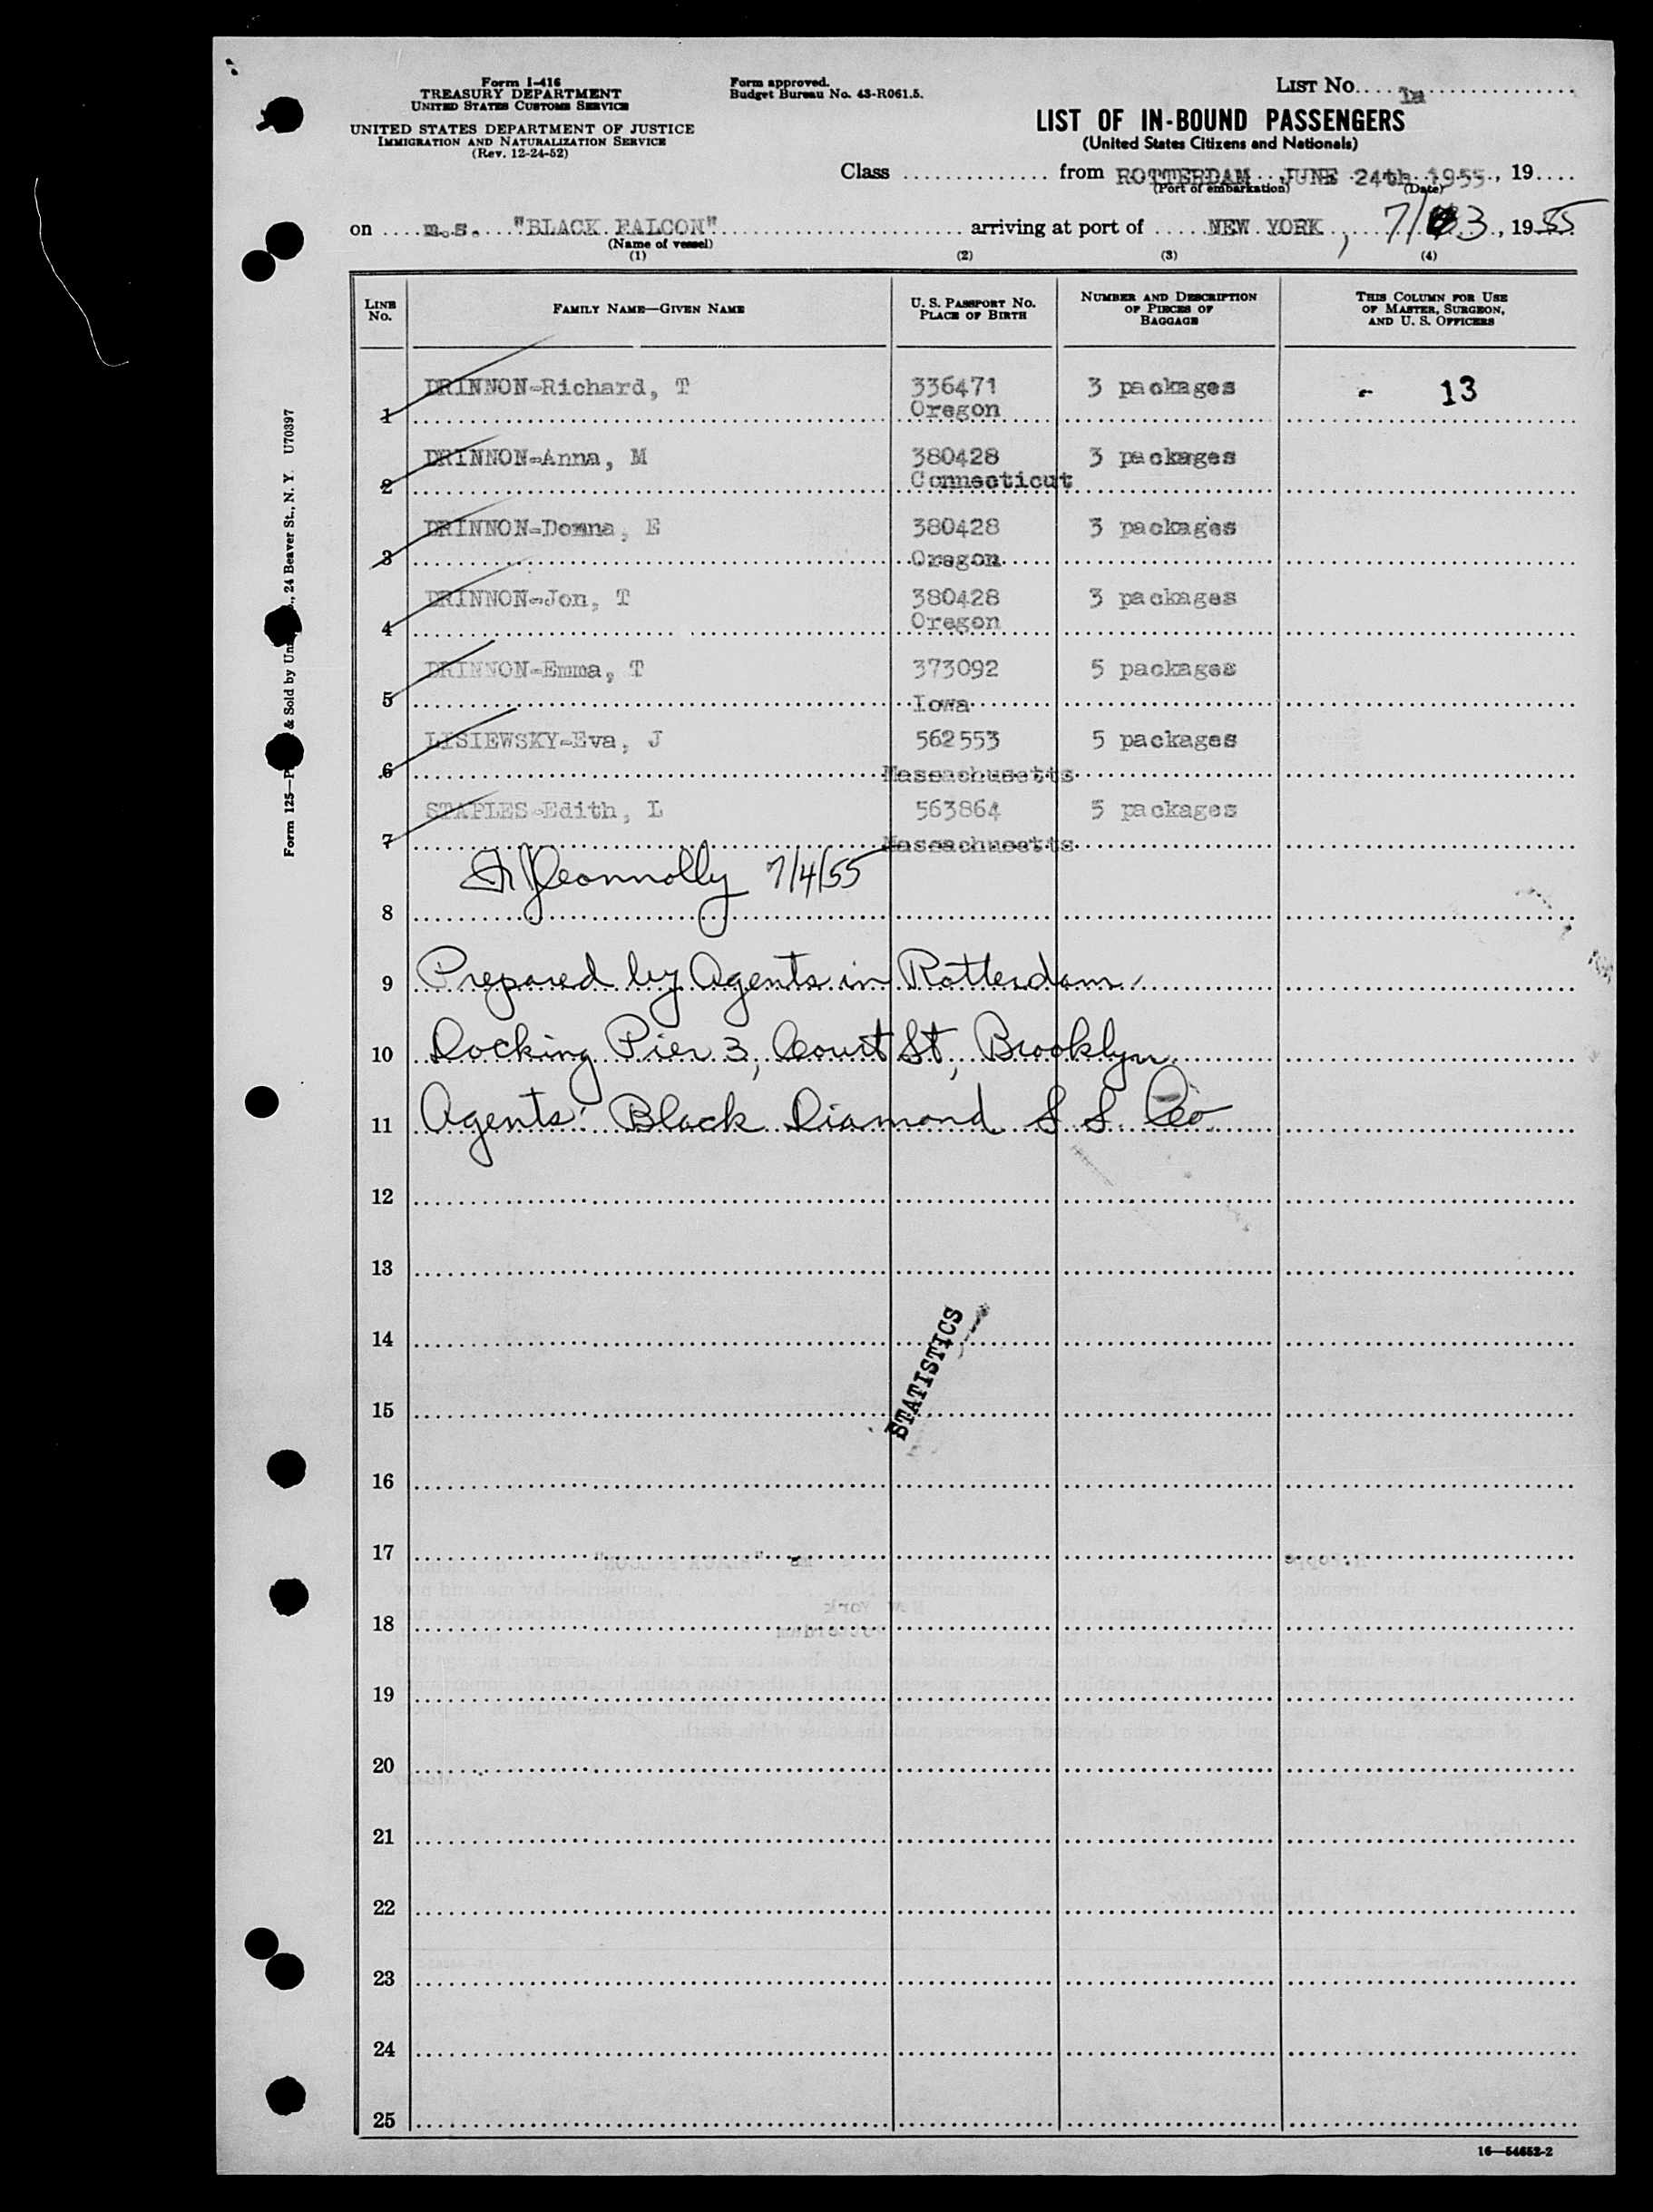 Form I-416
TREASURY DEPARTMENT
UNITED STATES CUSTOMS SERVICE
UNITED STATES DEPARTMENT OF JUSTICE
IMMIGRATION AND NATURALIZATION SERVICE
(Rev. 12-24-52)
Form approved.
Budget Bureau No. 43-R061.5.
LIST No.
LIST OF IN-BOUND PASSENGERS
(United States Citizens and Nationals)
Class from ROTTERDAM JUNE 24th 1955, 19
(Port of embarkation) (Date)
on m.s. "BLACK FALCON" arriving at port of NEW YORK, 7/3, 1955
(Name of vessel)
(1) (2) (3) (4)
LINE No. FAMILY NAME—GIVEN NAME U. S. PASSPORT NO. PLACE OF BIRTH NUMBER AND DESCRIPTION OF PIECES OF BAGGAGE THIS COLUMN FOR USE OF MASTER, SURGEON, AND U. S. OFFICERS
DRINNON-Richard, T 336471 3 packages - 13
1 Oregon
DRINNON-Anna, M 380428 3 packages
2 Connecticut
DRINNON-Donna, E 380428 3 packages
3 Oregon
DRINNON-Jon, T 380428 3 packages
4 Oregon
DRINNON-Emma, T 373092 5 packages
5 Iowa
LISIEWSKY-Eva, J 562553 5 packages
6 Massachusetts
STAPLES-Edith, L 563864 5 packages
7 Massachusetts
Connolly 7/4/55
8
9 Prepared by Agents in Rotterdam
10 Docking Pier 3, Court St, Brooklyn
11 Agents: Black Diamond S S. Co
12
13
14
STATISTICS
15
16
17
18
19
20
21
22
23
24
25
16—54652-2
Form 125—P & Sold by Un , 24 Beaver St., N. Y. U70397